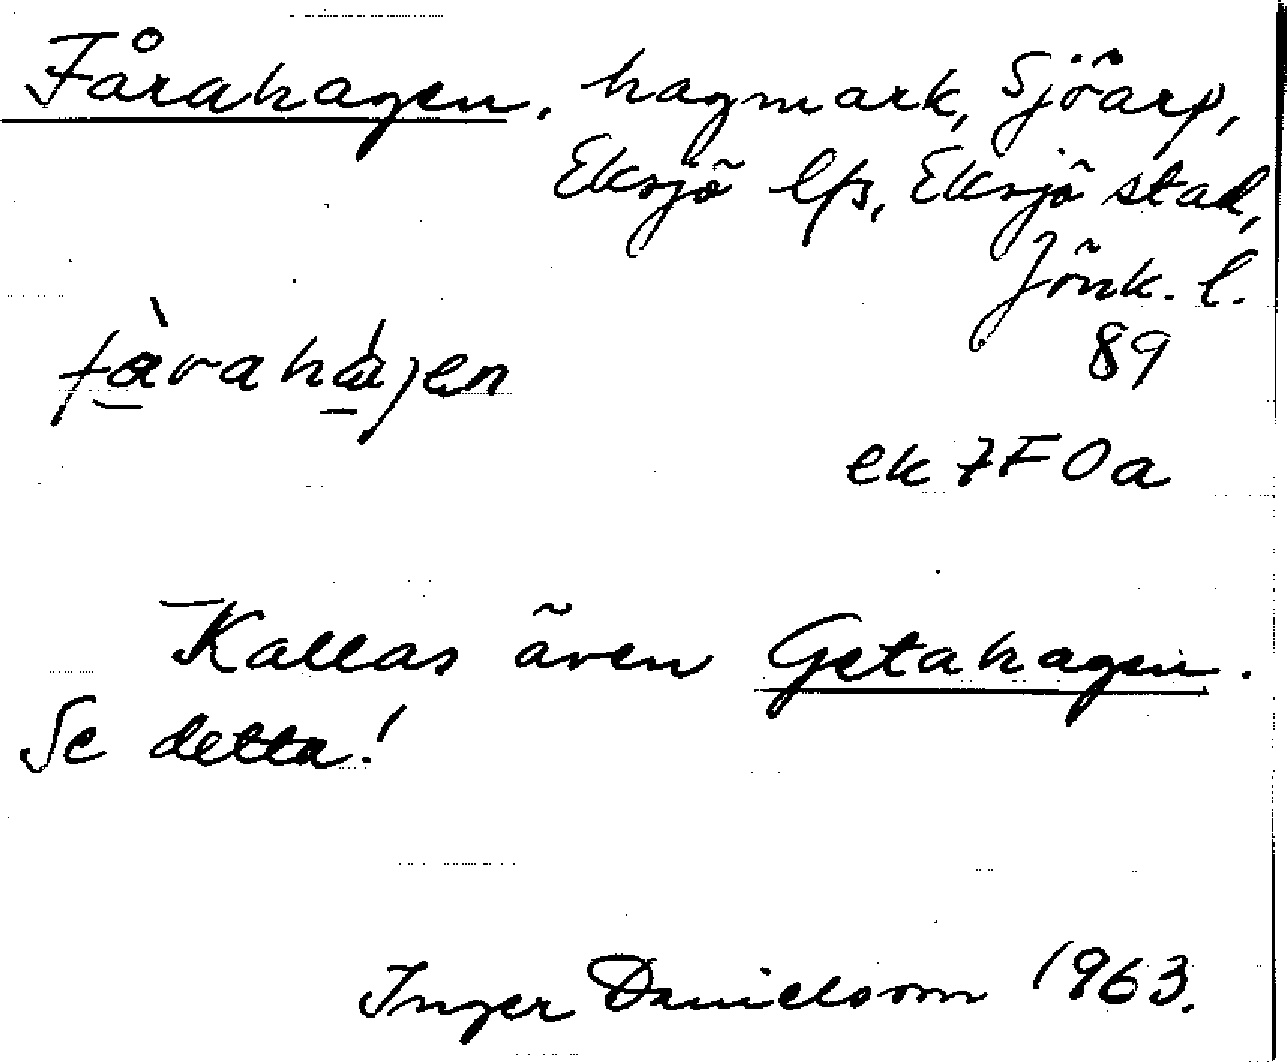 Fårahagen, hagmark, Sjöarp,
Eksjö lfs, Eksjö stad,
Jönk. l.
fàrahájen
89
ek 7F0a
Kallas även Getahagen.
Se detta!
Inger Danielsson 1963.